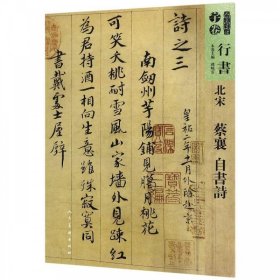 行書
北宋
蔡襄 自書詩
詩之三
皇祐二年十一月外除赴京
南劔州芋陽鋪見臘月桃花
可笑夭桃耐雪風山家墻外見疎紅
為君持酒一相向生意雖殊寂寞同
書戴處士屋壁